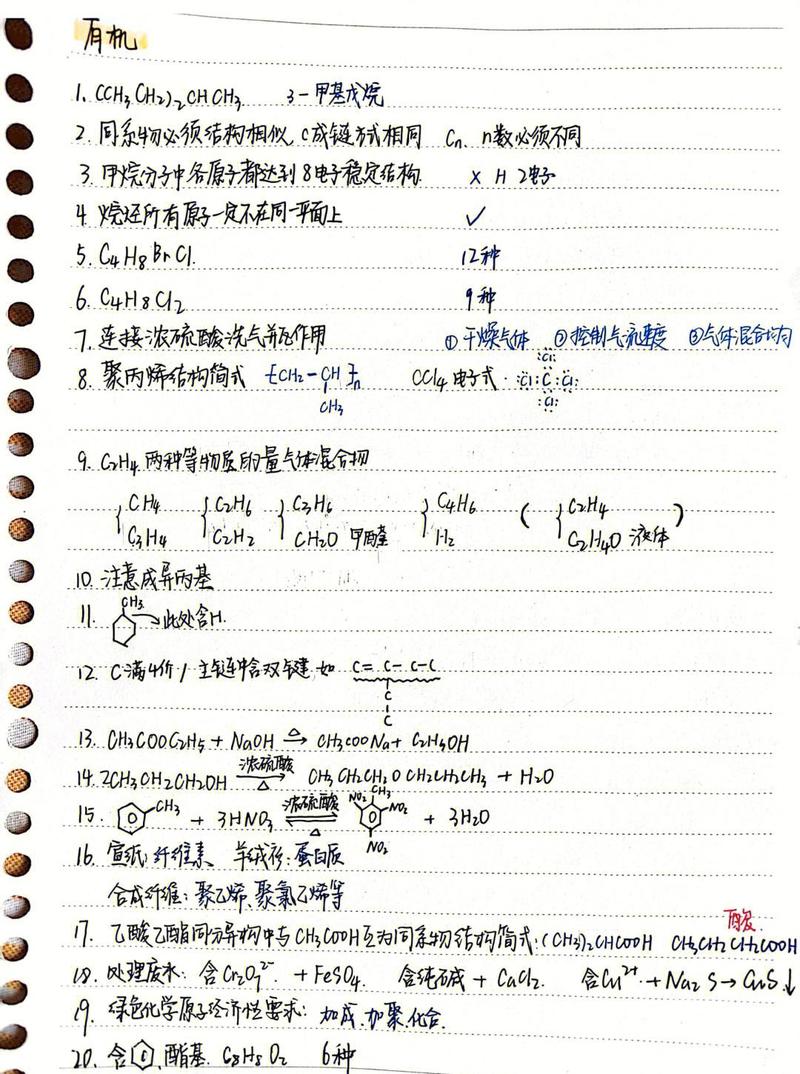 有机
1. (CH3CH2)2CHCH3 3-甲基戊烷
2. 同系物必须结构相似 C成链方式相同 Cn n数必须不同
3. 甲烷分子中各原子都达到8电子稳定结构. × H 2电子
4. 烷烃所有原子一定不在同一平面上 ✓
5. C4H8BrCl. 12种
6. C4H8Cl2 9种
7. 连接浓硫酸洗气瓶作用 ①干燥气体 ②控制气流速度 ③气体混合均匀
8. 聚丙烯结构简式 [CH2-CH]n CCl4电子式
CH3
:Cl:C:Cl:
Cl
Cl
9. C2H4两种等物质的量气体混合物
{CH4 {C2H6 {C3H6 {C4H6 ( {C2H4 )
C3H4 C2H2 CH2O 甲醛 H2 C2H4O 液体
10. 注意成异丙基
11. CH3 → 此处含H.
12. C满4价 / 主链中含双键 如 C=C-C-C
C
C
13. CH3COOC2H5 + NaOH △→ CH3COONa + C2H5OH
14. 2CH3CH2CH2OH 浓硫酸 △→ CH3CH2CH2OCH2CH2CH3 + H2O
15. CH3 + 3HNO3 浓硫酸 △ ⇌ NO2 CH3 NO2 NO2 + 3H2O
16. 宣纸:纤维素 羊绒衫:蛋白质
合成纤维:聚乙烯、聚氯乙烯等
17. 乙酸乙酯同分异构中与CH3COOH互为同系物结构简式:(CH3)2CHCOOH CH3CH2CH2COOH
18. 处理废水: 含Cr2O7²⁻ + FeSO4. 含纯碱 + CaCl2. 含Cu²⁺ + Na2S → CuS↓
19. 绿色化学原子经济性要求: 加成.加聚.化合.
20. 含 、酯基. C8H8O2 6种